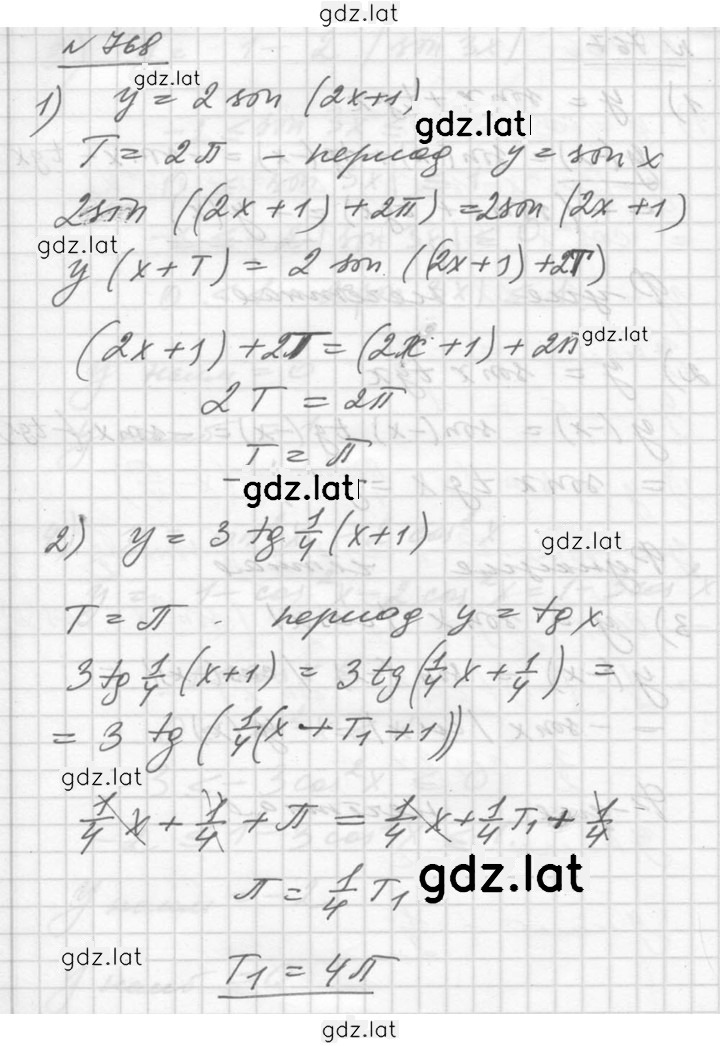 gdz.lat
№ 768
gdz.lat
1) y = 2 sin (2x+1)
gdz.lat
T = 2π – период y = sin x
2sin ((2x+1)+2π) = 2sin (2x+1)
gdz.lat
y (x+T) = 2 sin ((2x+1)+2T)
(2x+1)+2T = (2x+1)+2π
gdz.lat
2T = 2π
T = π
gdz.lat
2) y = 3 tg 1/4 (x+1)
gdz.lat
T = π - период y = tg x
3 tg 1/4 (x+1) = 3 tg (1/4 x + 1/4) =
= 3 tg (1/4 (x + T₁ + 1))
gdz.lat
1/4 x + 1/4 + π = 1/4 x + 1/4 T₁ + 1/4
gdz.lat
π = 1/4 T₁
gdz.lat
T₁ = 4π
gdz.lat